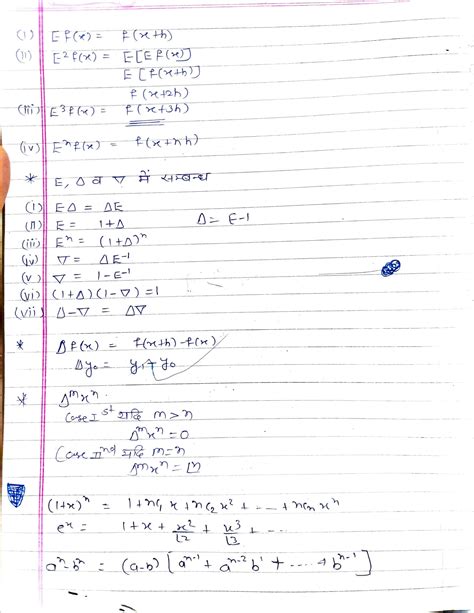 (i) E f(x) = f(x+h)
(ii) E²f(x) = E[E f(x)]
E [f(x+h)]
f(x+2h)
(iii) E³f(x) = f(x+3h)
(iv) Eⁿf(x) = f(x+nh)
* E, Δ व ∇ में सम्बन्ध
(i) EΔ = ΔE
(ii) E = 1+Δ Δ = E-1
(iii) Eⁿ = (1+Δ)ⁿ
(iv) ∇ = ΔE⁻¹
(v) ∇ = 1-E⁻¹
(vi) (1+Δ)(1-∇)=1
(vii) Δ-∇ = Δ∇
* Δf(x) = f(x+h)-f(x)
Δy₀ = y₁-y₀
* Δᵐxⁿ
Case Iˢᵗ यदि m>n
Δᵐxⁿ=0
Case IIⁿᵈ यदि m=n
Δᵐxⁿ = ⌊n
(1+x)ⁿ = 1+nC₁ x+nC₂ x² + --- + nCₙ xⁿ
eˣ = 1+x+ x²/⌊2 + x³/⌊3 + ---
aⁿ-bⁿ = (a-b) [aⁿ⁻¹ + aⁿ⁻²b¹ + ---- + bⁿ⁻¹]